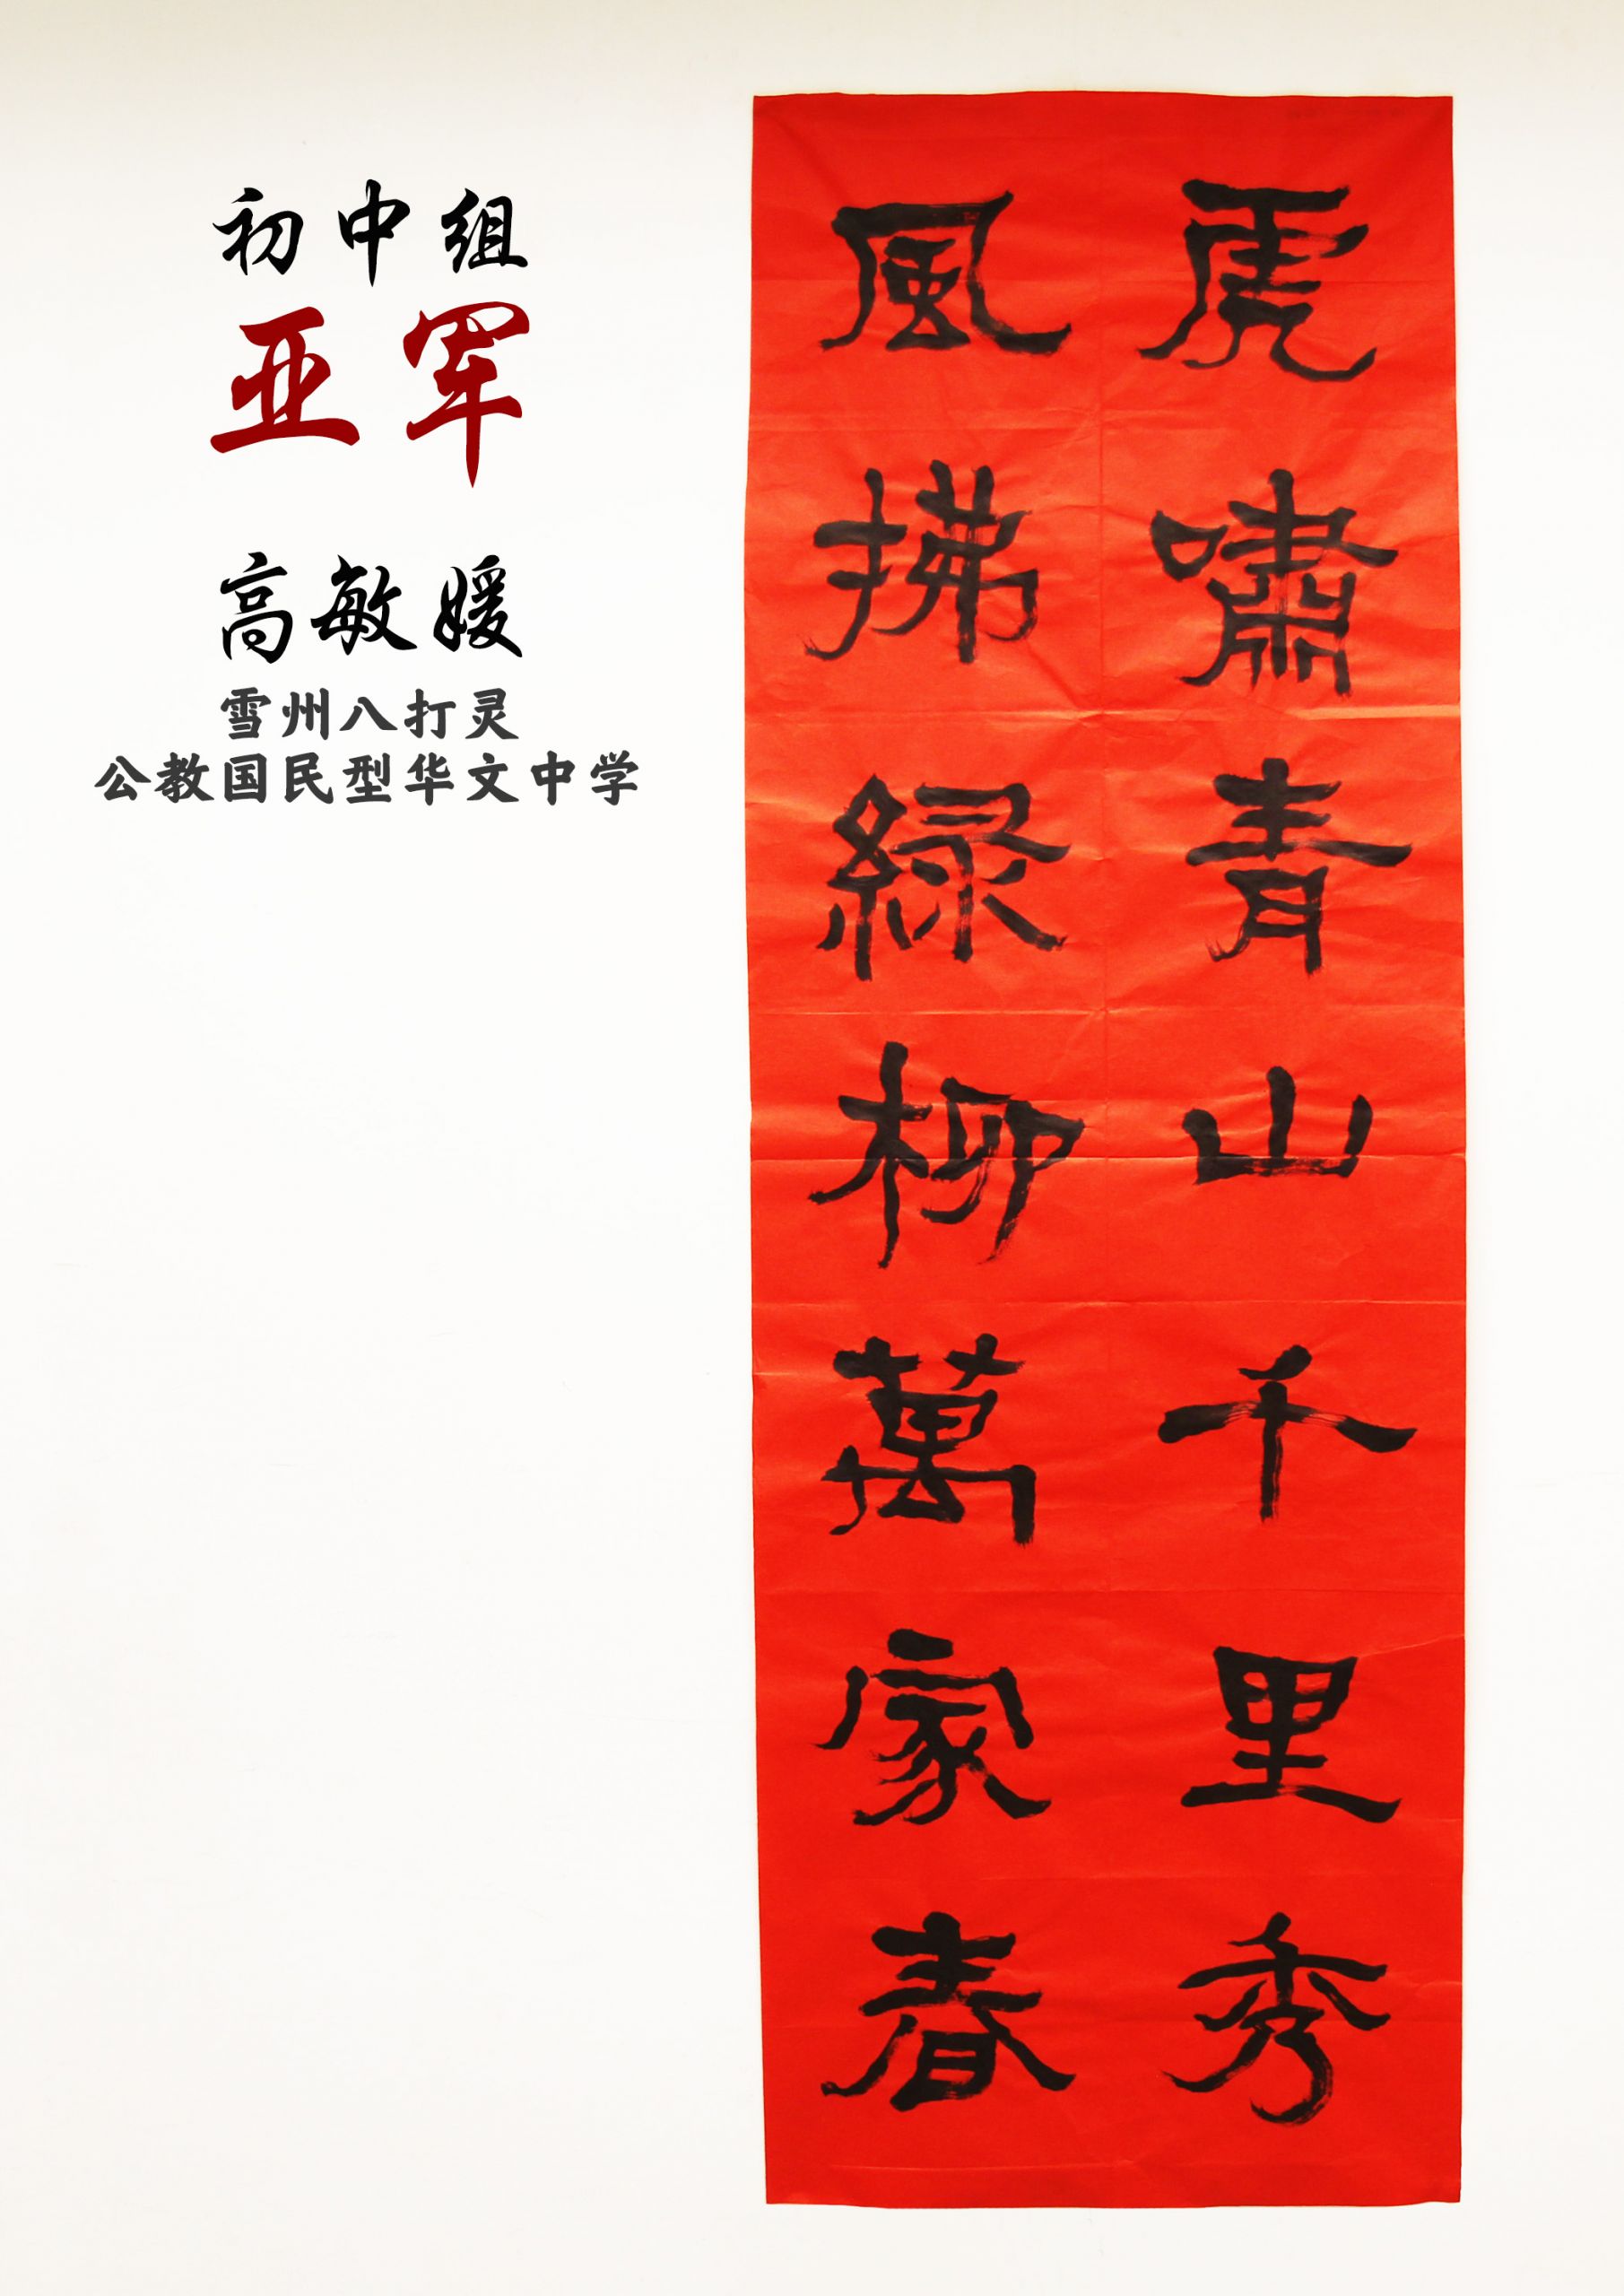 初中组
亚军
高敏媛
雪州八打灵
公教国民型华文中学
虎嘯青山千里秀
風拂綠柳萬家春